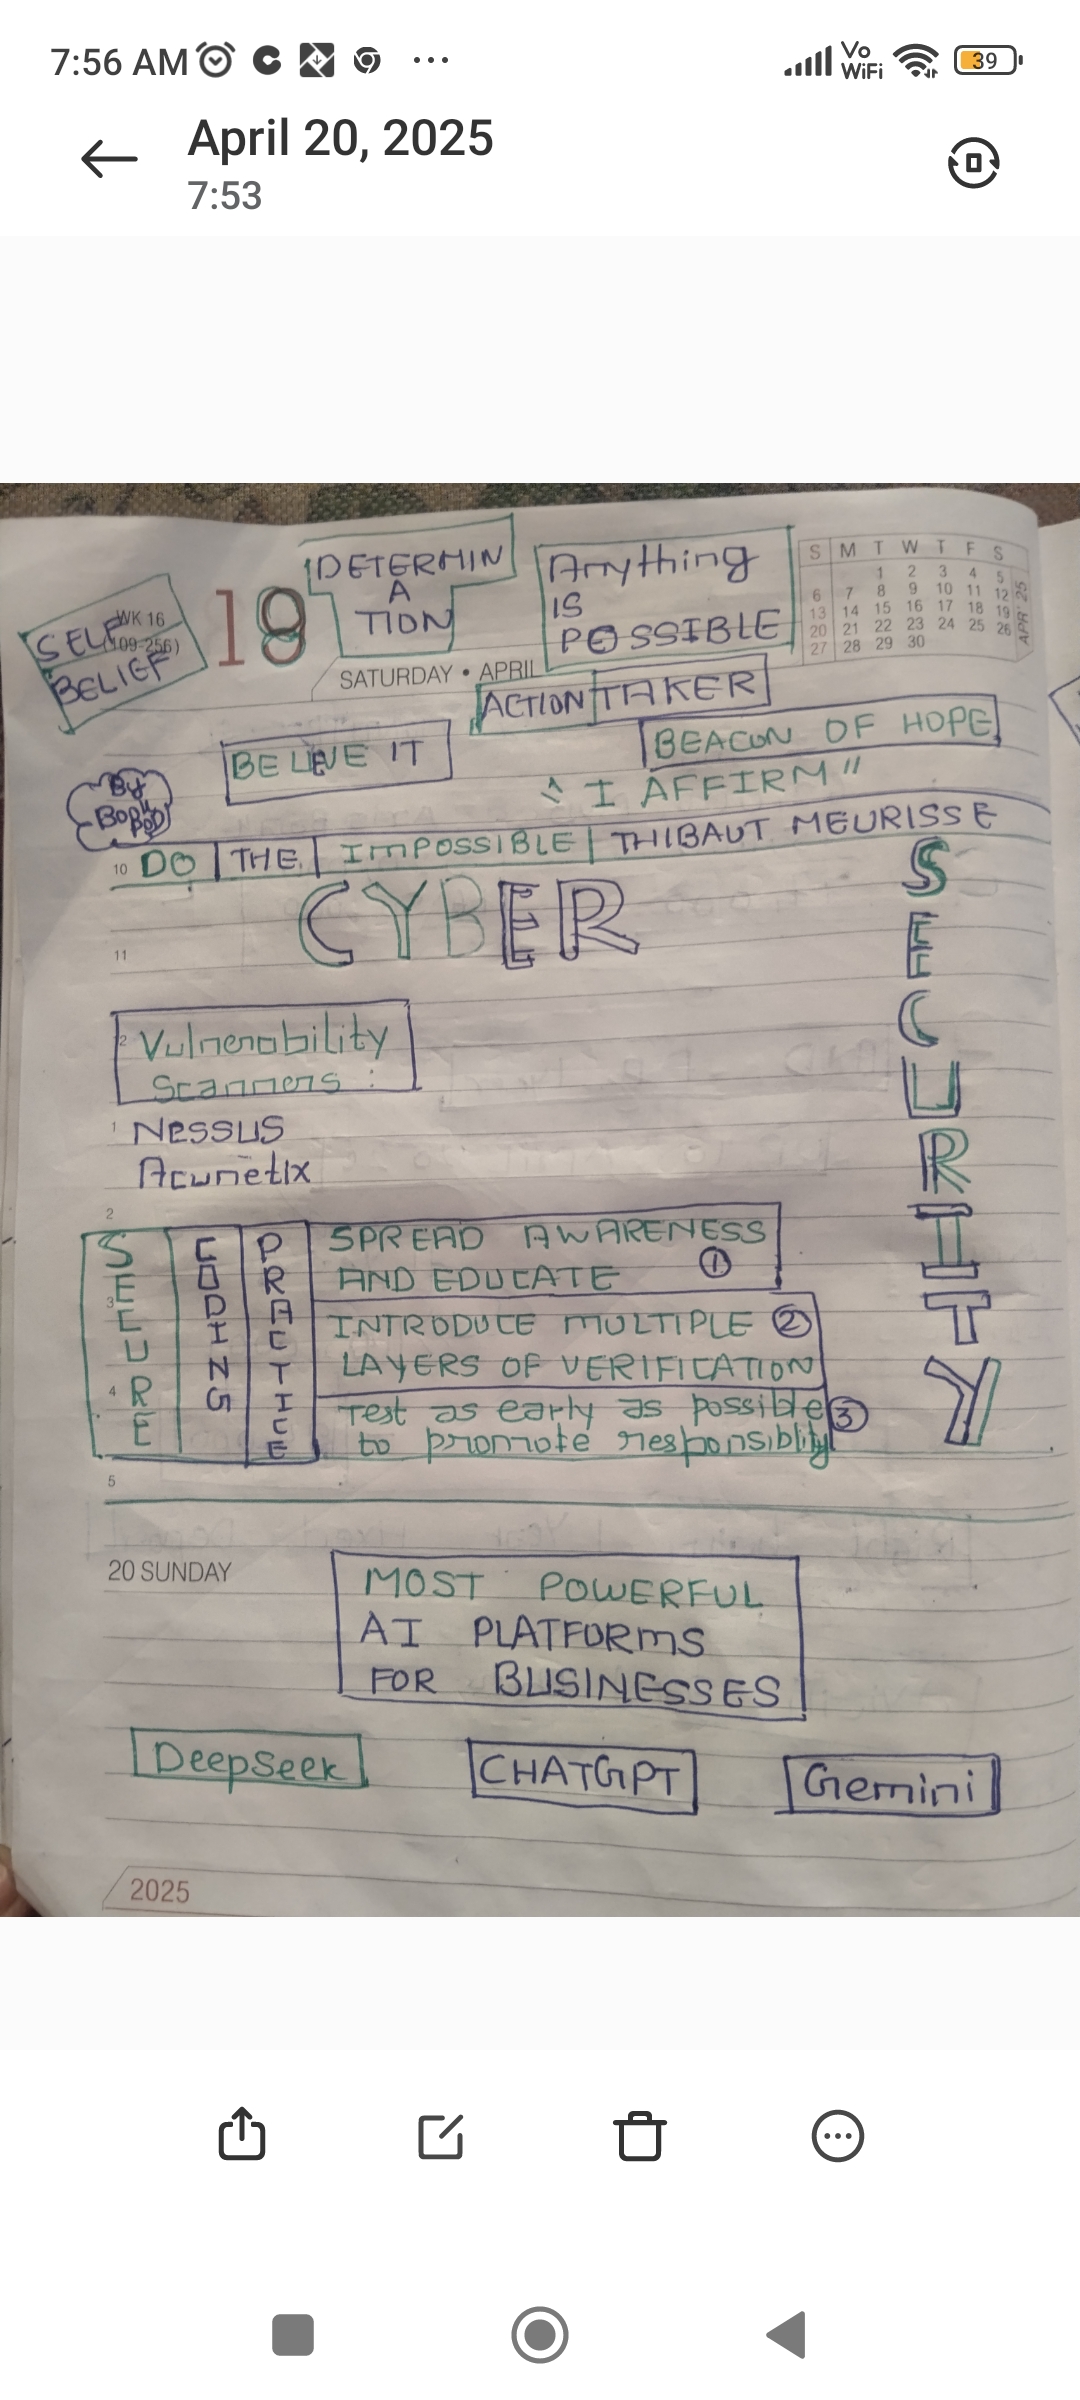 7:56 AM
Vo WiFi
39
April 20, 2025
7:53
SELF BELIEF
WK 16
(109-256)
19
DETERMIN
A
TION
Anything
IS
POSSIBLE
SATURDAY • APRIL
S M T W T F S
1 2 3 4 5
6 7 8 9 10 11 12
13 14 15 16 17 18 19
20 21 22 23 24 25 26
27 28 29 30
APR' 25
ACTION TAKER
BELIEVE IT
BEACON OF HOPE
"I AFFIRM"
By
10 DO THE IMPOSSIBLE THIBAUT MEURISSE
CYBER
SECURITY
11
Vulnerability
Scanners :
1 Nessus
Acunetix
2
SECURE
CODING
PRACTICE
SPREAD AWARENESS
AND EDUCATE ①
INTRODUCE MULTIPLE ②
LAYERS OF VERIFICATION
Test as early as possible ③
to promote responsiblity
3
4
5
20 SUNDAY
MOST POWERFUL
AI PLATFORMS
FOR BUSINESSES
DeepSeek
CHATGPT
Gemini
2025